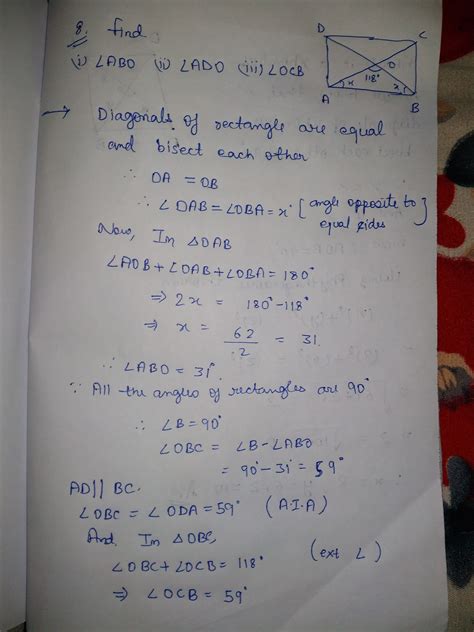 8. find
(i) ∠ABO (ii) ∠ADO (iii) ∠OCB
D C
O
118°
x x
A B
→ Diagonals of rectangle are equal
and bisect each other
∴ OA = OB
∴ ∠OAB = ∠OBA = x° [angle opposite to equal sides]
Now, In △OAB
∠AOB + ∠OAB + ∠OBA = 180°
⇒ 2x = 180° - 118°
⇒ x = 62/2 = 31.
∴ ∠ABO = 31°.
∵ All the angles of rectangles are 90°
∴ ∠B = 90°
∠OBC = ∠B - ∠ABO
= 90° - 31° = 59°
AD || BC.
∠OBC = ∠ODA = 59° (A.I.A)
And In △OBC,
∠OBC + ∠OCB = 118° (ext ∠)
⇒ ∠OCB = 59°